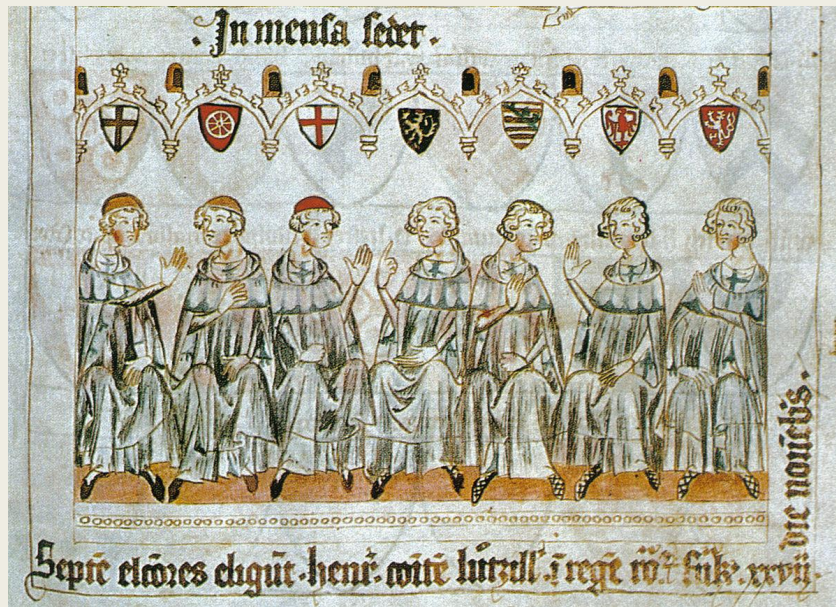 In mensa sedet.
Septē elcōres eligūt henr. comitē lutzill. ī regē ro. xxvii.
die nouēbis.